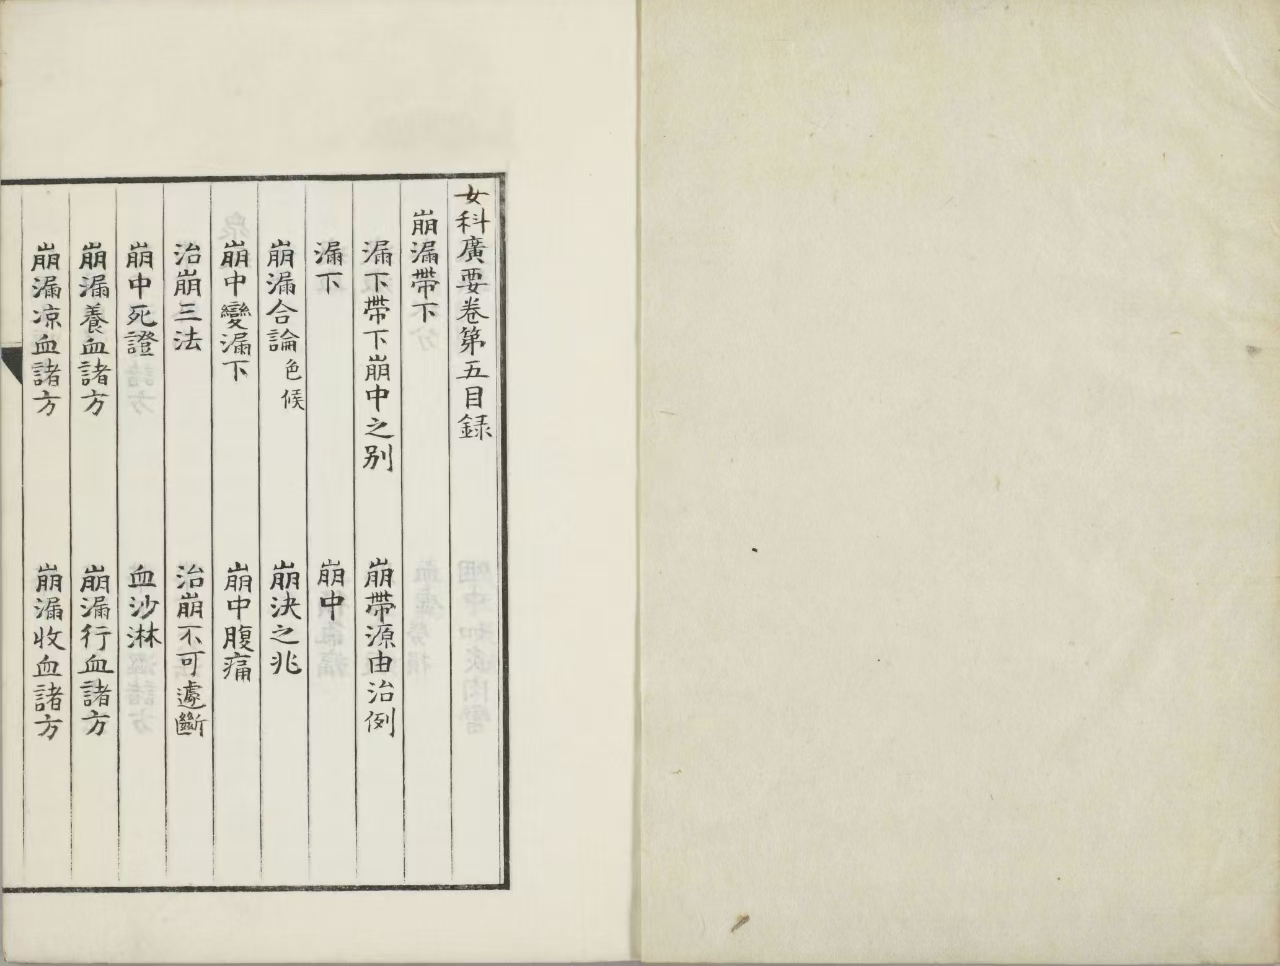 女科廣要卷第五目録
崩漏帶下
漏下帶下崩中之别
崩帶源由治例
漏下
崩中
崩漏合論色候
崩決之兆
崩中變漏下
崩中腹痛
治崩三法
治崩不可遽斷
崩中死證
血沙淋
崩漏養血諸方
崩漏行血諸方
崩漏凉血諸方
崩漏收血諸方